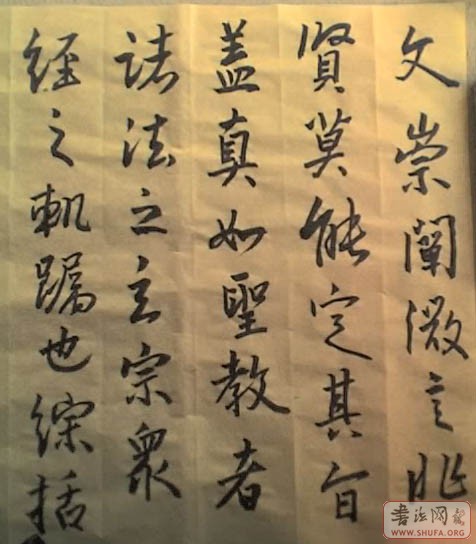 文崇闡微言非
賢莫能定其旨
蓋真如聖教者
諸法之玄宗衆
經之軌躅也綜括
书法网
WWW.SHUFA.ORG